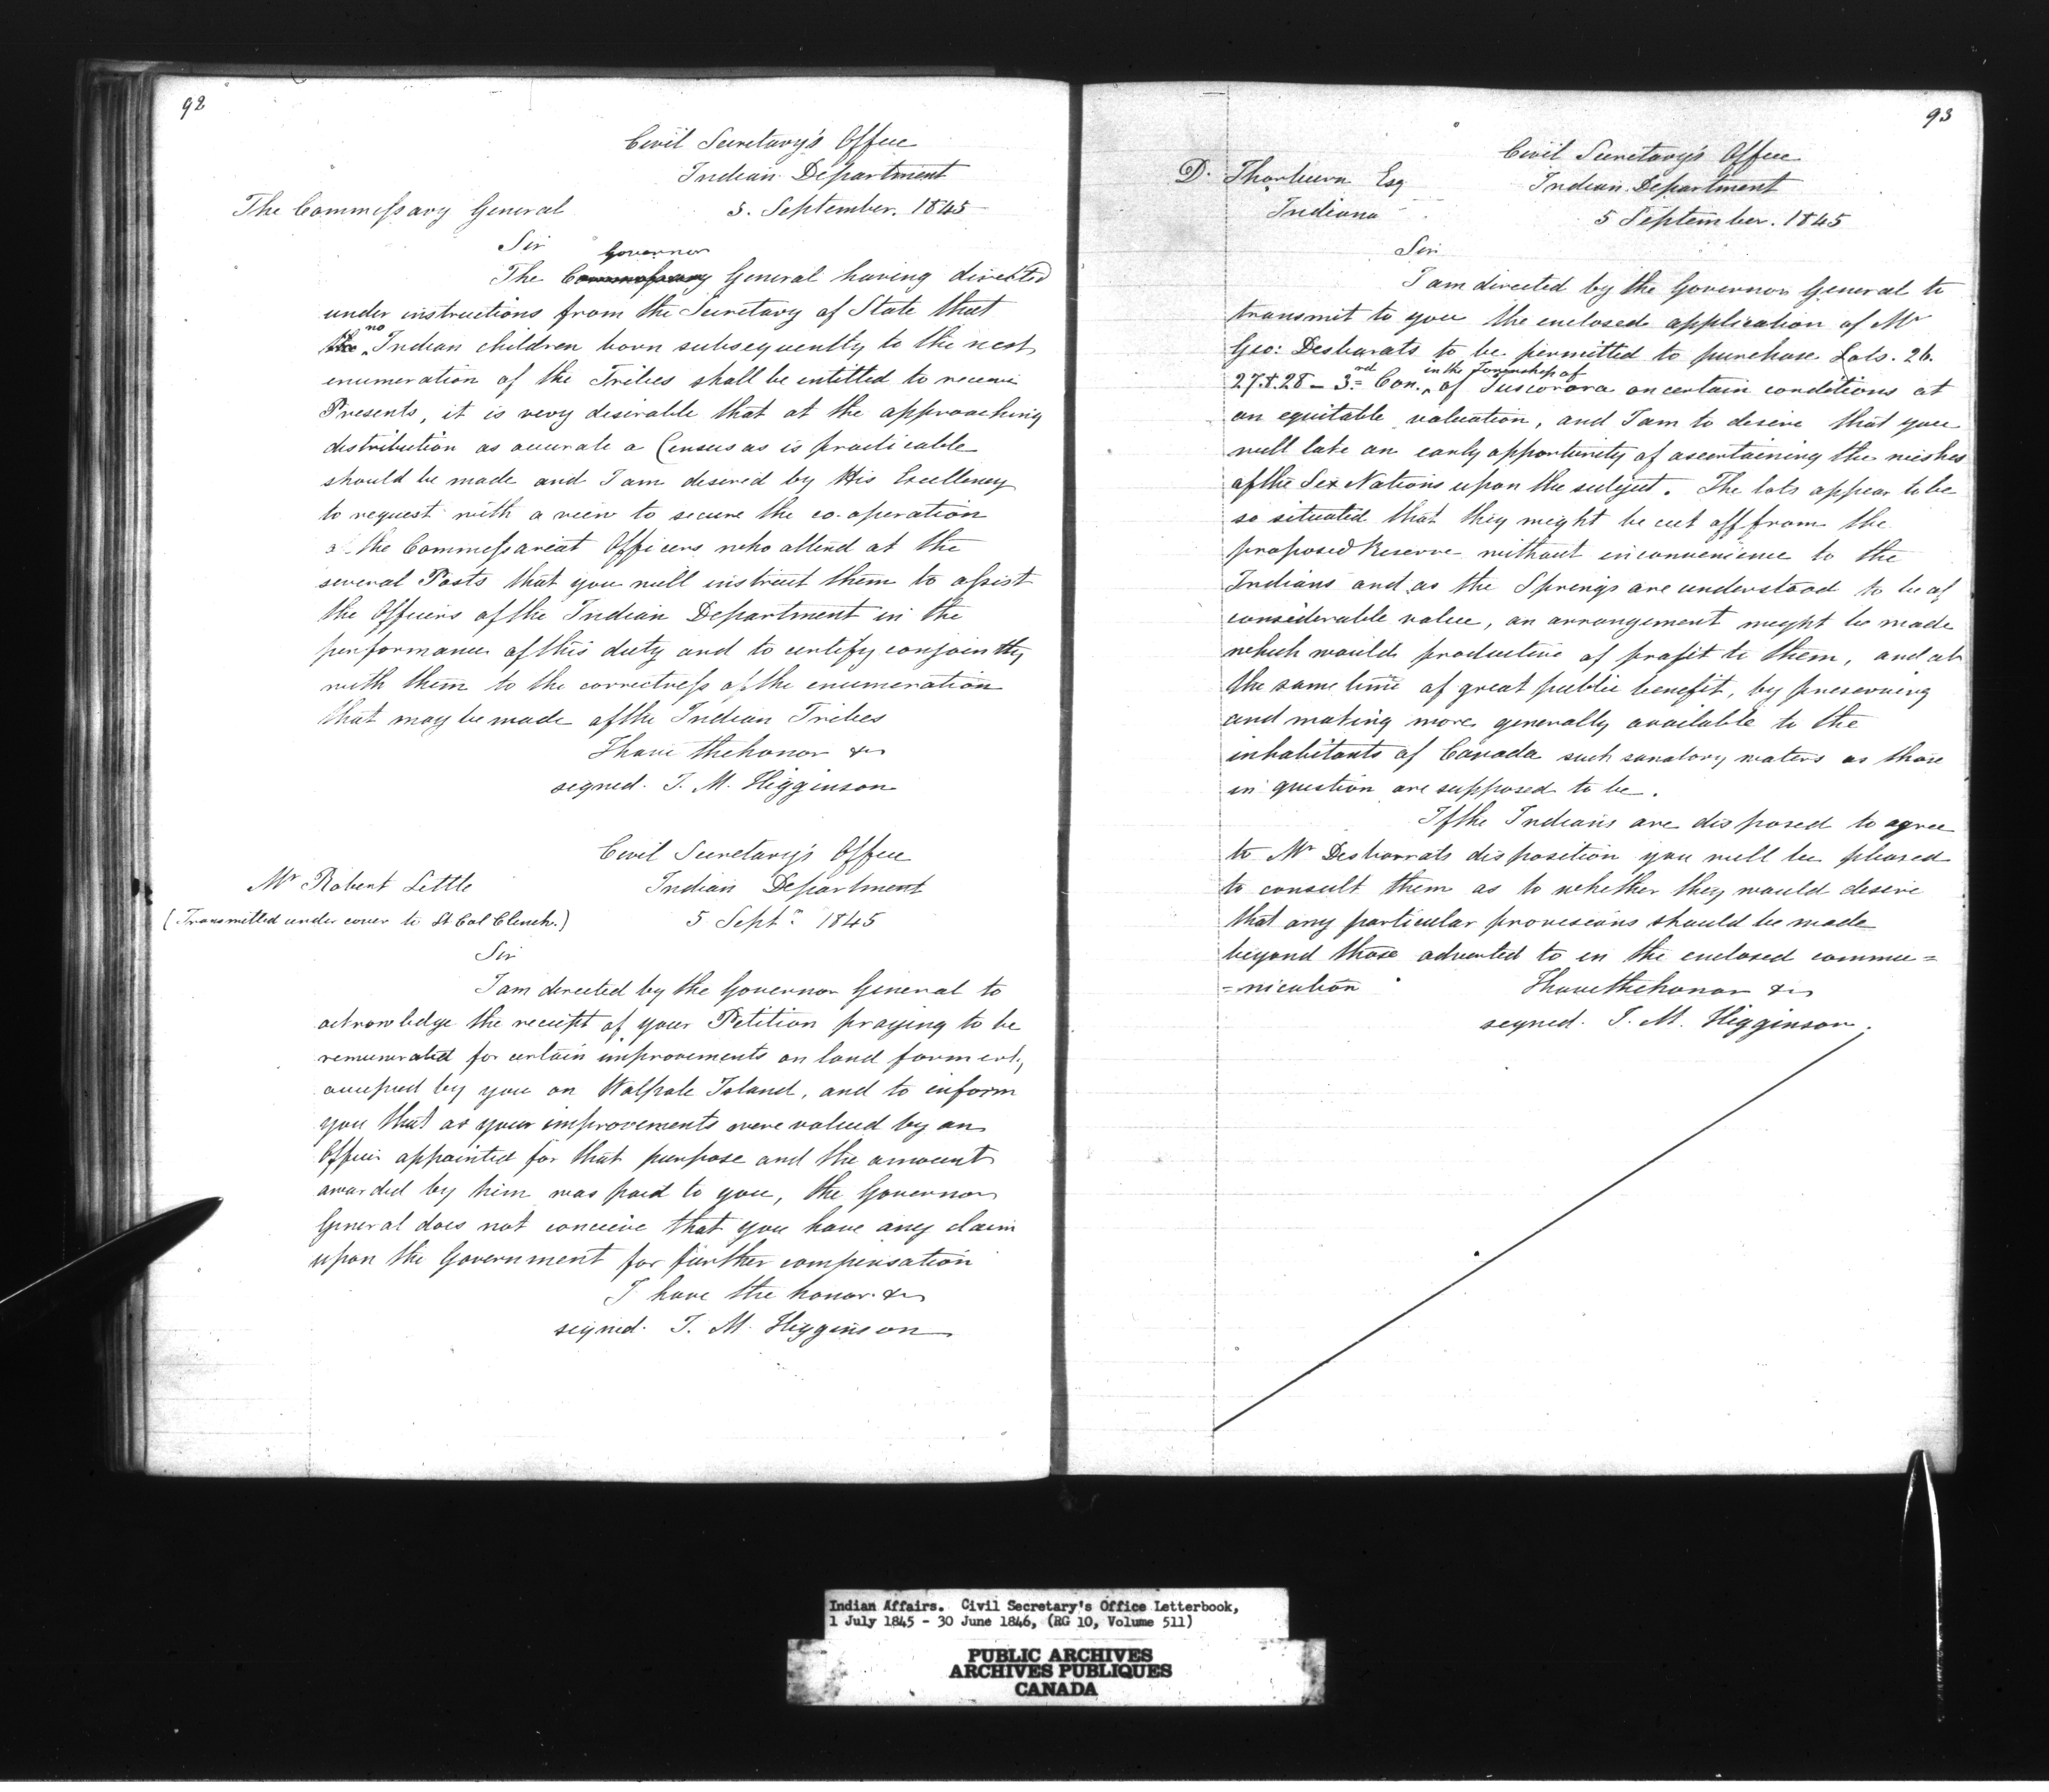 92
Civil Secretary's Office
Indian Department
The Commissary General
5. September. 1845
Sir
Governor
The Commissary General having directed
under instructions from the Secretary of State that
the no Indian children born subsequently to the next
enumeration of the Tribes shall be entitled to receive
Presents, it is very desirable that at the approaching
distribution as accurate a Census as is practicable
should be made and I am desired by His Excellency
to request with a view to secure the co-operation
of the Commissariat Officers who attend at the
several Posts that you will instruct them to assist
the Officers of the Indian Department in the
performance of this duty and to certify conjointly
with them to the correctness of the enumeration
that may be made of the Indian Tribes
I have the honor &c
signed. J. M. Higginson
Civil Secretary's Office
Mr Robert Little
Indian Department
(Transmitted under cover to Lt Col Clench.)
5 Septr 1845
Sir
I am directed by the Governor General to
acknowledge the receipt of your Petition praying to be
remunerated for certain improvements on land formerly
occupied by you on Walpole Island, and to inform
you that as your improvements were valued by an
Officer appointed for that purpose and the amount
awarded by him was paid to you, the Governor
General does not conceive that you have any claim
upon the Government for further compensation
I have the honor &c
signed. J. M. Higginson
93
Civil Secretary's Office
D. Thorburn Esq
Indian Department
Indiana
5 September. 1845
Sir
I am directed by the Governor General to
transmit to you the enclosed application of Mr
Geo: Desbarats to be permitted to purchase Lots. 26.
in the Township of
27. & 28 - 3rd Con. of Tuscorora on certain conditions at
an equitable valuation, and I am to desire that you
will take an early opportunity of ascertaining the wishes
of the Six Nations upon the subject. The lots appear to be
so situated that they might be cut off from the
proposed Reserve without inconvenience to the
Indians and as the Springs are understood to be of
considerable value, an arrangement might be made
which would productive of profit to them, and at
the same time of great public benefit, by preserving
and making more generally available to the
inhabitants of Canada such sanatory waters as those
in question are supposed to be.
If the Indians are disposed to agree
to Mr Desbarrats disposition you will be pleased
to consult them as to whether they would desire
that any particular provisions should be made
beyond those adverted to in the enclosed commu=
=nication
I have the honor &c
signed. J. M. Higginson.
Indian Affairs. Civil Secretary's Office Letterbook,
1 July 1845 - 30 June 1846, (RG 10, Volume 511)
PUBLIC ARCHIVES
ARCHIVES PUBLIQUES
CANADA